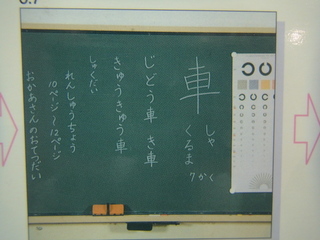 車
しゃ
くるま
7かく
じどう車 き車
きゅうきゅう車
しゅくだい
れんしゅうちょう
10ページ〜12ページ
おかあさんのおてつだい